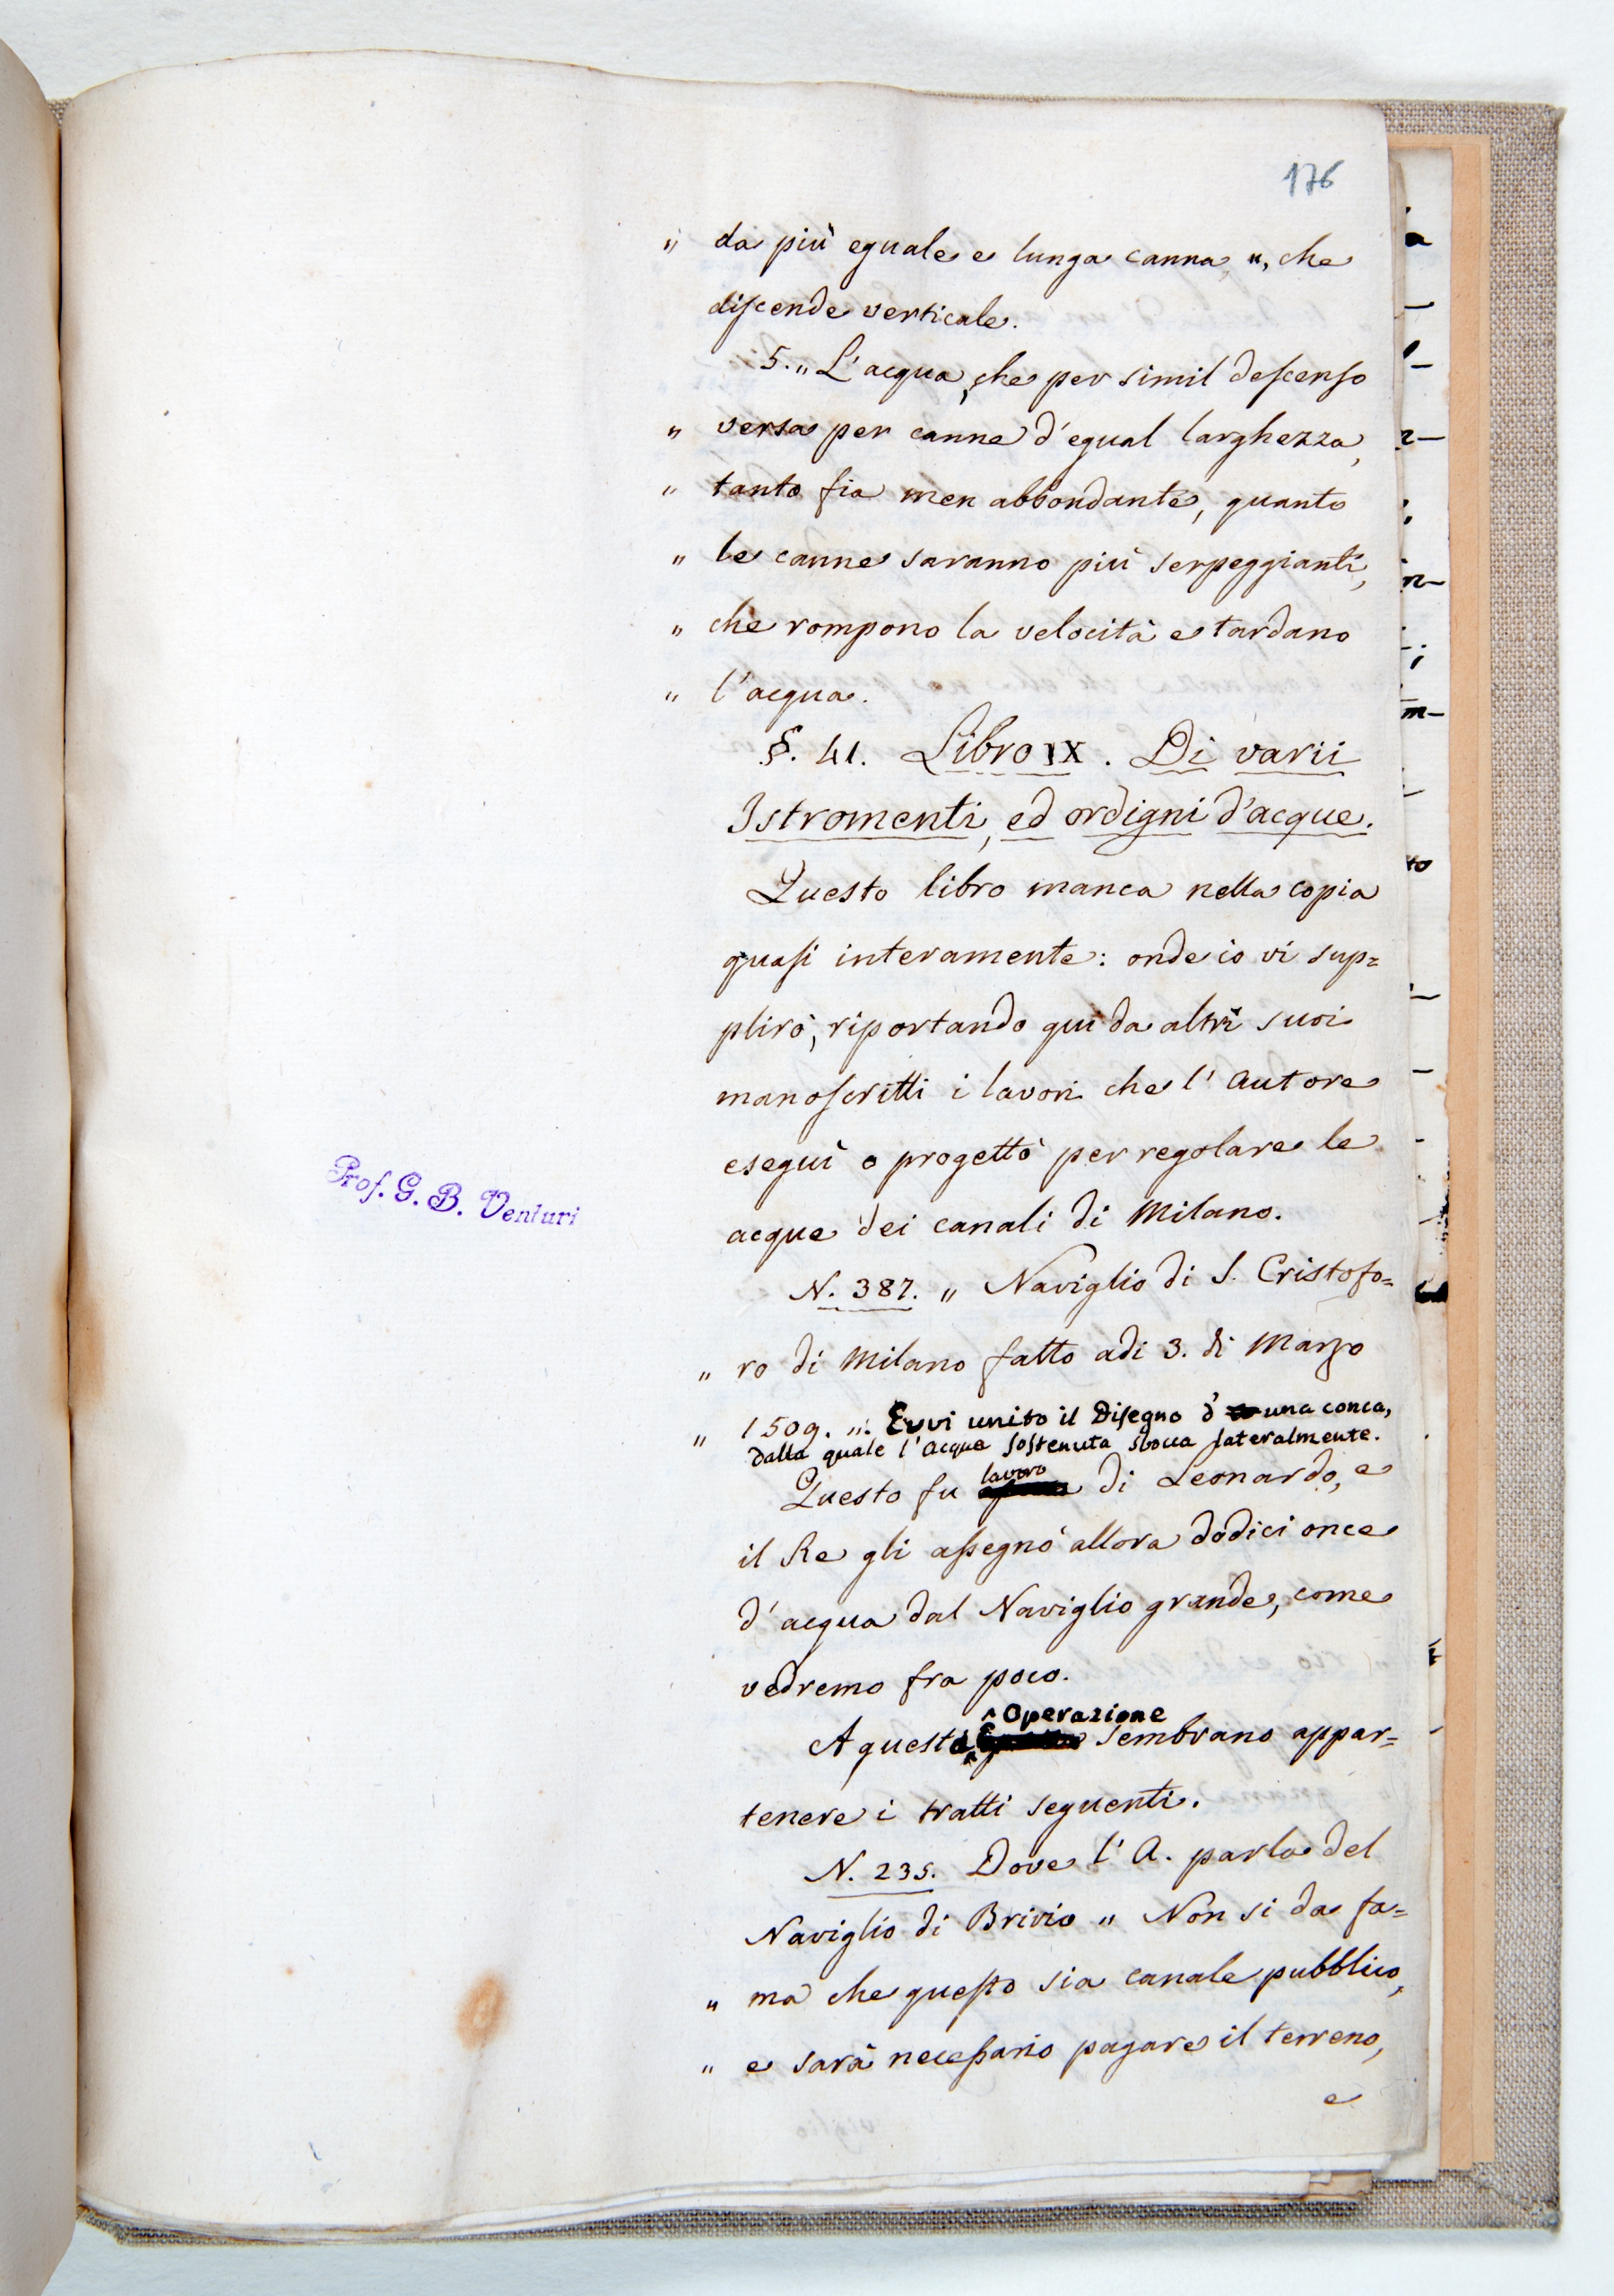 176
„ da più eguale e lunga canna „, che
discende verticale.
5. „ L'acqua, che per simil descenso
„ versa per canne d'egual larghezza,
„ tanto fia men abbondante, quanto
„ le canne saranno più serpeggianti,
„ che rompono la velocità e tardano
„ l'acqua.
§. 41. Libro IX. Di varii
Istromenti, ed ordigni d'acque.
Questo libro manca nella copia
quasi interamente: onde io vi sup=
plirò, riportando qui da altri suoi
manoscritti i lavori che l'Autore
eseguì o progettò per regolare le
acque dei canali di Milano.
N. 387. „ Naviglio di S. Cristofo=
„ ro di Milano fatto adi 3. di Marzo
„ 1509. „. Evvi unito il Disegno d' una conca,
dalla quale l'acqua sostenuta sbocca lateralmente.
Questo fu lavoro di Leonardo, e
il Re gli assegnò allora dodici once
d'acqua dal Naviglio grande, come
vedremo fra poco.
A questa Operazione sembrano appar=
tenere i tratti seguenti.
N. 235. Dove l'A. parla del
Naviglio di Brivio „ Non si da fa=
„ ma che questo sia canale pubblico,
„ e sarà necessario pagare il terreno,
e
Prof. G. B. Venturi